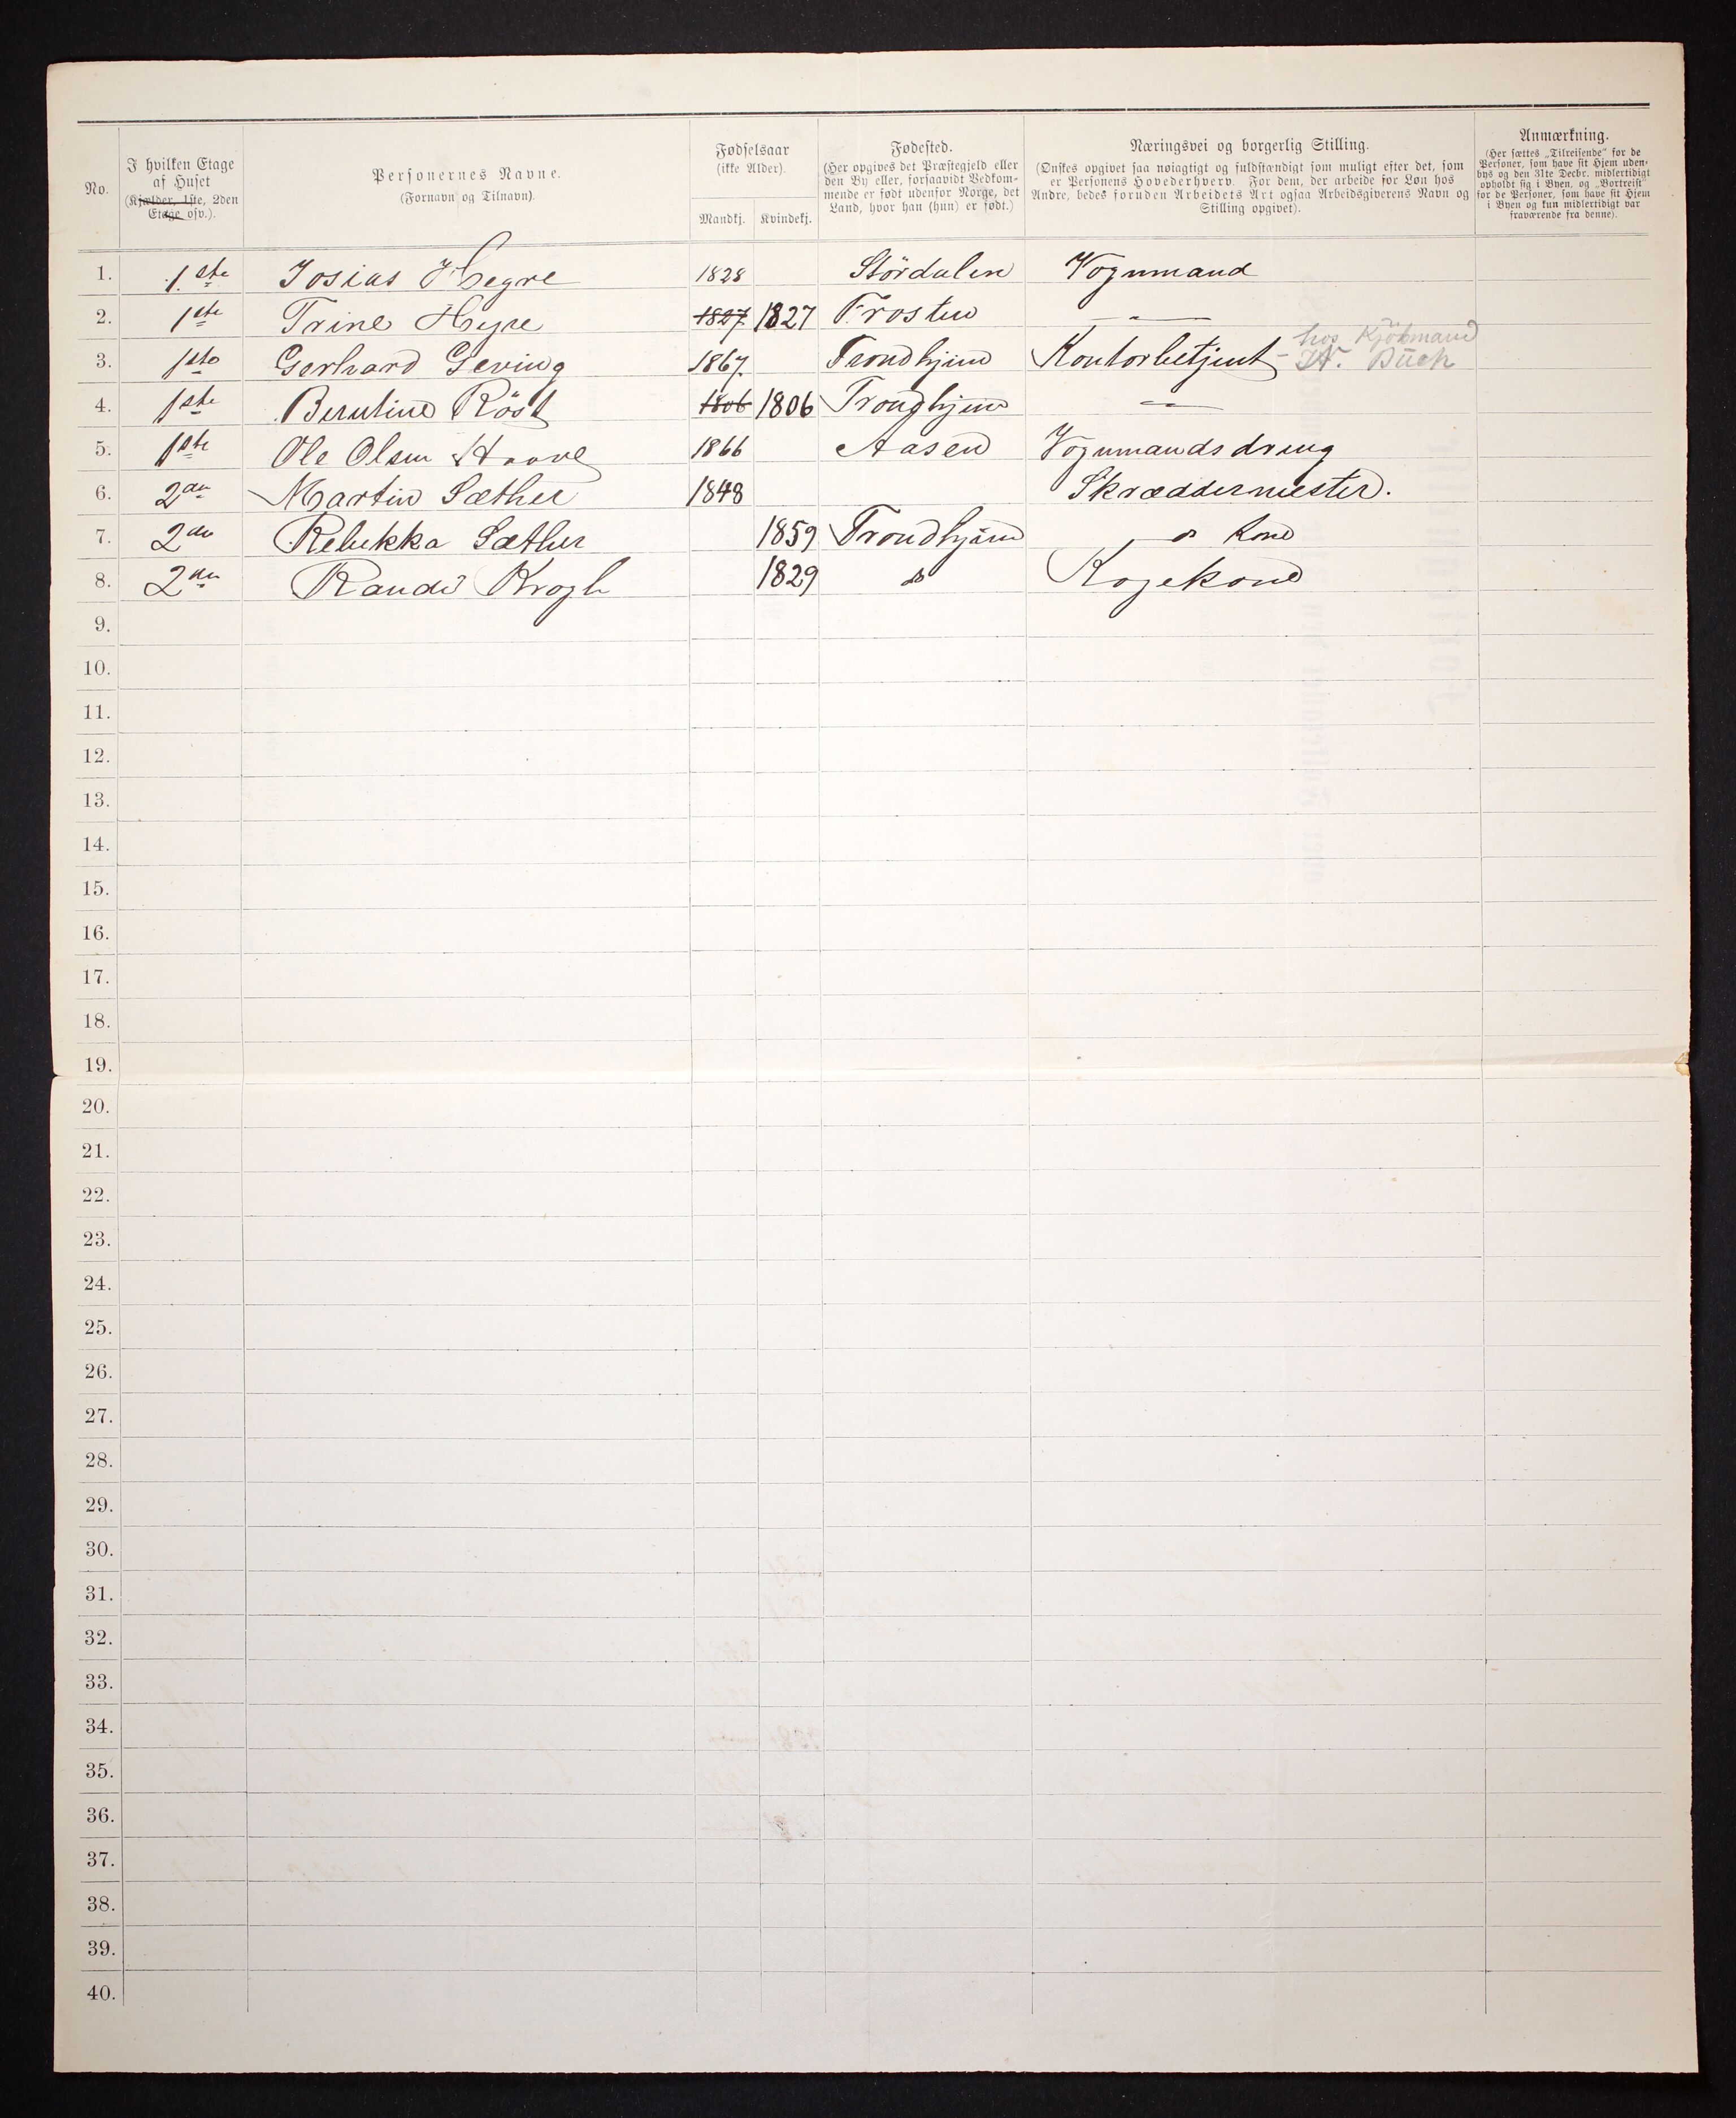 No. I hvilken Etage af Huset (Kjælder, 1ste, 2den Etage osv.). Personernes Navne. (Fornavn og Tilnavn). Fødselsaar (ikke Alder). Mandkj. Kvindekj. Fødested. (Her opgives det Præstegjeld eller den By eller, forsaavidt Vedkommende er født udenfor Norge, det Land, hvor han (hun) er født.) Næringsvei og borgerlig Stilling. (Ønskes opgivet saa nøiagtigt og fuldstændigt som muligt efter det, som er Personens Hovederhverv. For dem, der arbeide for Løn hos Andre, bedes foruden Arbeidets Art ogsaa Arbeidsgiverens Navn og Stilling opgivet). Anmærkning. (Her sættes „Tilreisende" for de Personer, som have sit Hjem udenbys og den 31te Decbr. midlertidigt opholdt sig i Byen, og „Bortreist" for de Personer, som have sit Hjem i Byen og kun midlertidigt var fraværende fra denne).
1. 1ste Josias Hegre 1828 Stördalen Vognmand
2. 1ste Trine Hegre 1827 1827 Frosten —"—
hos Kjöbmand
3. 1ste Gerhard Geving 1867. Trondhjem Kontorbetjent - H. Buch
4. 1ste Berntine Röst 1806 1806 Trondhjem —"—
5. 1ste Ole Olsen Haave 1866 Aasen Vognmandsdreng
6. 2den Martin Sæther 1848 Skræddermester.
7. 2den Rebekka Sæther 1859 Trondhjem do Kone
8. 2den Randi Krogh 1829 do Kogekone
9.
10.
11.
12.
13.
14.
15.
16.
17.
18.
19.
20.
21.
22.
23.
24.
25.
26.
27.
28.
29.
30.
31.
32.
33.
34.
35.
36.
37.
38.
39.
40.